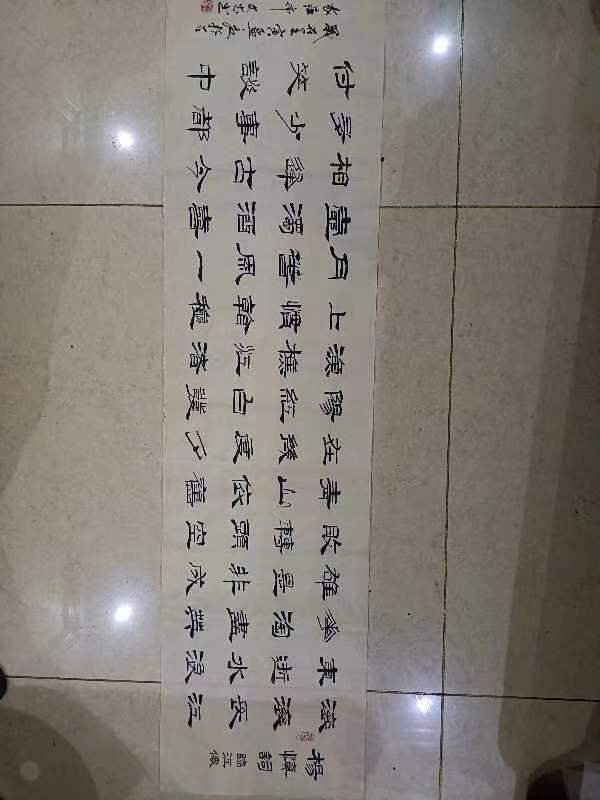 楊慎詞
臨江僊
滾滾長江
東逝水浪
花淘盡英
雄是非成
敗轉頭空
青山依舊
在幾度夕
陽紅白髮
漁樵江渚
上慣看秋
月春風一
壺濁酒喜
相逢古今
多少事都
付笑談中